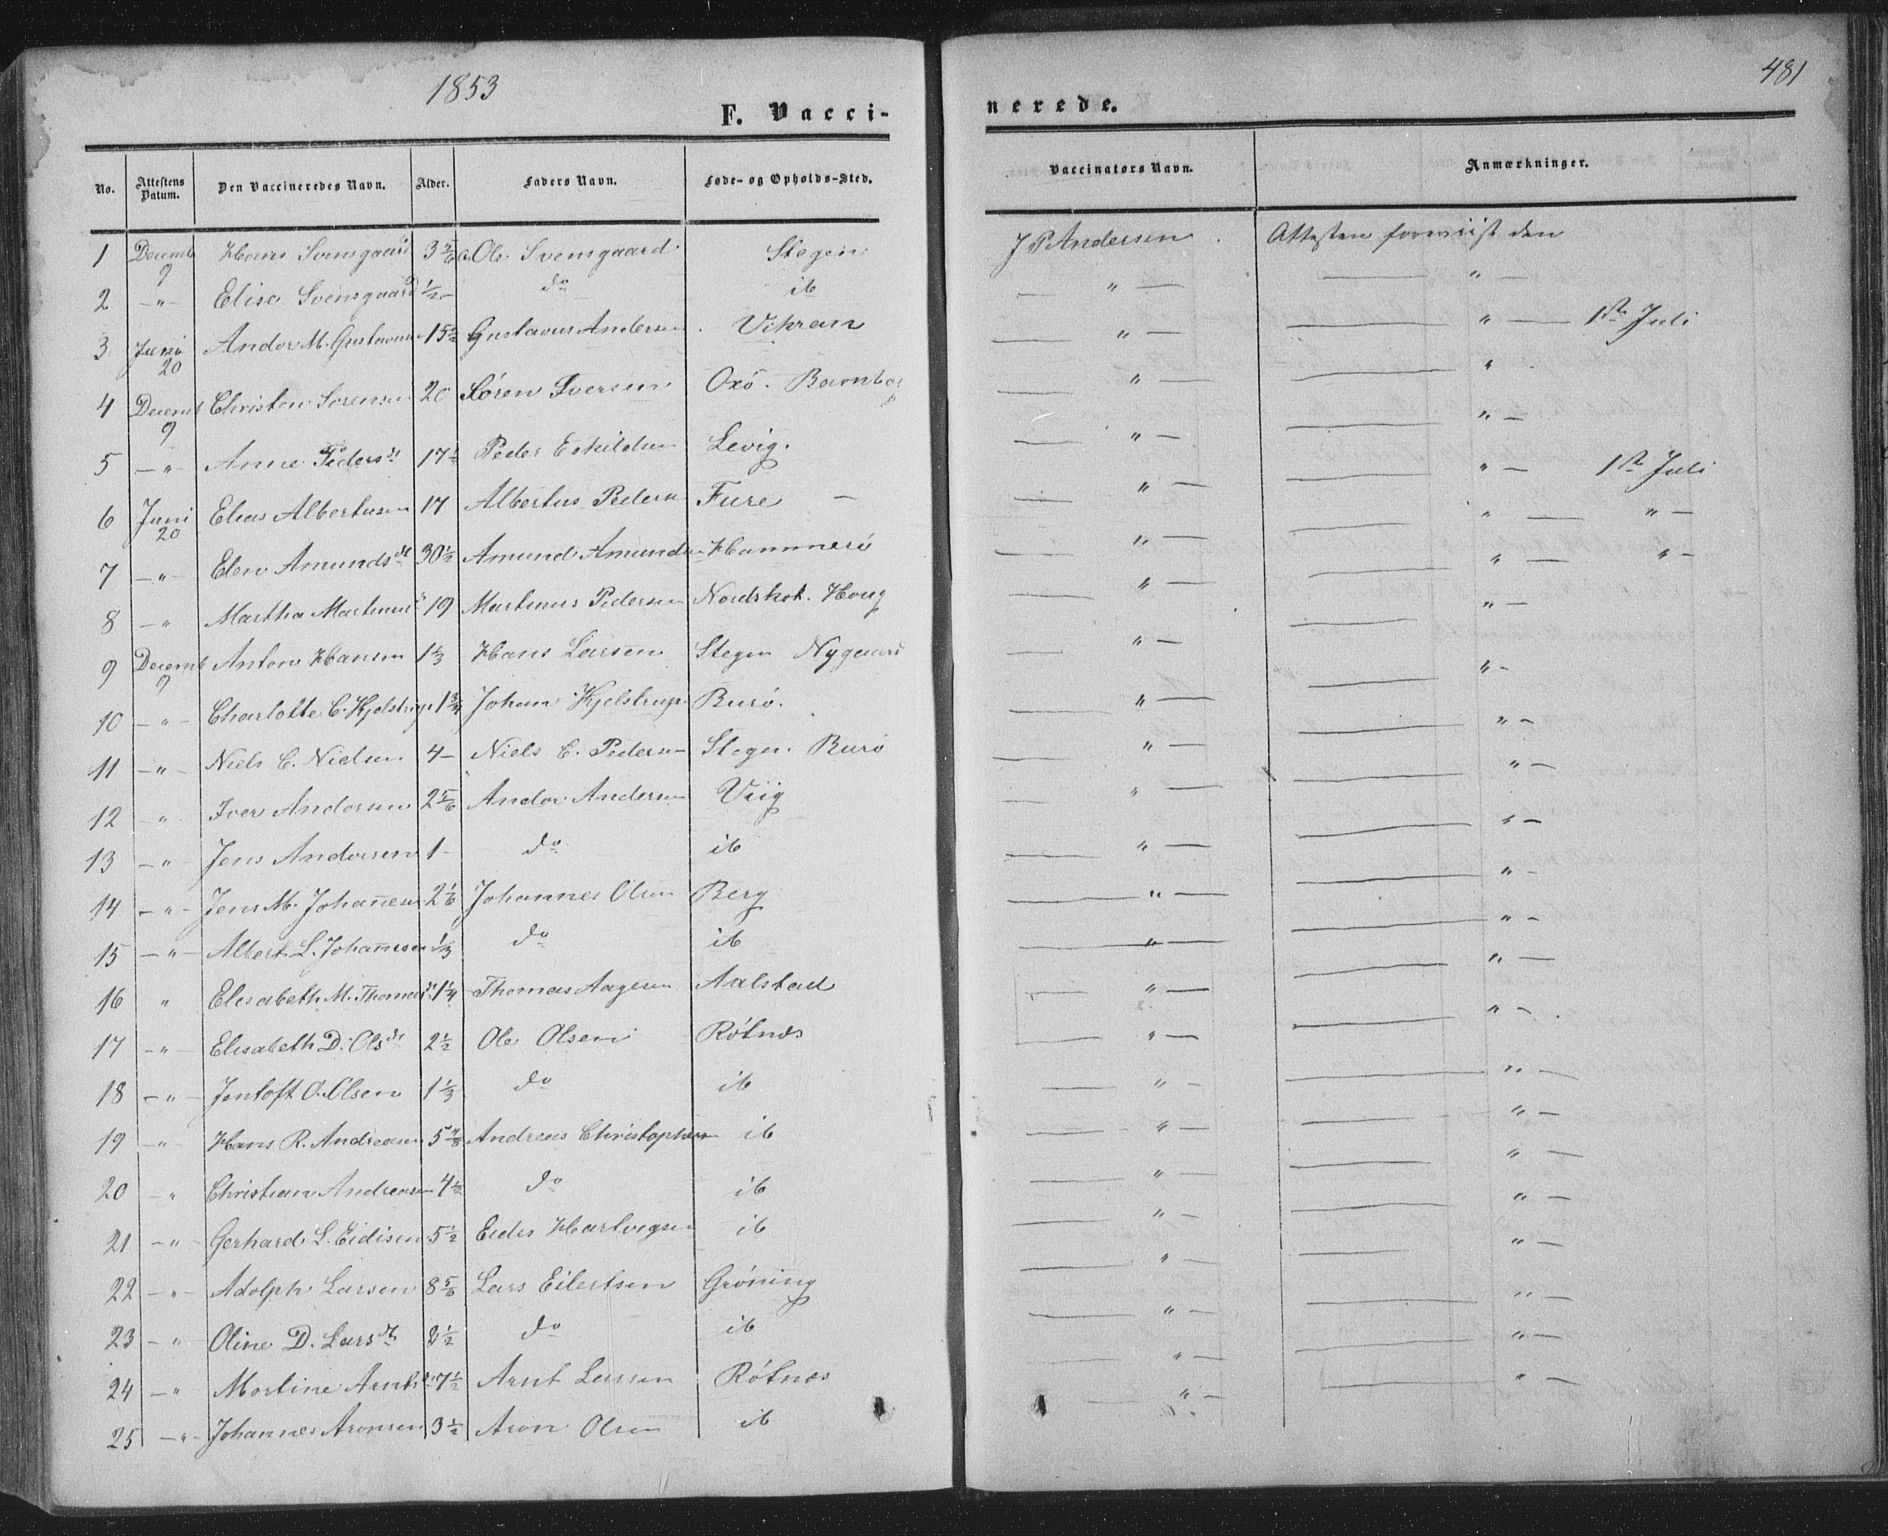 1853
481
F. Vacci-
nerede.
No. Attestens Datum. Den Vaccineredes Navn. Alder. Faders Navn. Føde- og Opholds-Sted. Vaccinators Navn. Anmærkninger.
1 Decemb 9 Hans Svensgaard 3 5/6 Ole Svensgaard Stegen J P Andersen Attesten foreviist den
2 —"— Elisa Svensgaard 1/2 do ib — " — — " —
3 Juni 20 Andor M. Gustavus 15 1/2 Gustavus Andersen Vikran — " — — " — 1ste Juli
4 Decemb 9 Christen Sørensen 20 Søren Iversen Oxø. — " — — "
5 —"— Anne Pedersdt 17 1/2 Peder Eskildsen Levig. — " — — " —
6 Juni 20 Elias Albertusen 17 Albertus Pedersen Fure — — " — — " — 1ste Juli
7 —"— Elen Amundsdt 30 1/2 Amund Amundsen Hammerø — " — — " — " —
8 —"— Martha Martinus 19 Martinus Pedersen Nordskot. Houg — " — — " — " —
9 Decemb 9 Anton Hansen 1 1/3 Hans Larsen Stegen Nygaard — " — — " —
10 —"— Charlotte C. Kjelstrup 1 3/4 Johan Kjelstrup Burø. — " — — " —
11 —"— Niels C. Nielsen 4 — Niels C. Pedersen Stegen. Burø — " — — " —
12 " Iver Andorsen 2 5/6 Andor Andersen Viig — " — — " —
13 —"— Jens Andorsen 1 — do ib — " — — " —
14 —"— Jens M. Johañesen 2 1/6 Johannes Olsen Berg — " — — " —
15 —"— Albert L. Johañesen 1/3 do ib — " — — " —
16 " Elisabeth M. Thomasdt 1 1/4 Thomas Aagesen Aalstad — " — — " —
17 —"— Elisabeth D. Olsdt 2 1/2 Ole Olsen Røtnæs — " — — " —
18 —"— Jentoft O. Olsen 1 1/3 do ib — " — — " —
19 —"— Hans R. Andreasen 5 Andreas Christophersen ib — " — — " —
20 —" Christian Andreasen 4 1/2 do ib — " — — " —
21 —"— Gerhard L. Eidisen 5 1/2 Eidis Hartvigsen ib — " — — " —
22 —"— Adolph Larsen 8 5/6 Lars Eilertsen Grøning — " — — " —
23 —" Oline D. Larsdt 3 1/2 do ib — " — — " —
24 —" Mortine Arntsdt 7 1/2 Arnt Larsen Røtnæs — " — — " —
25 —"— Johannes Aronsen 3 1/2 Aron Olsen ib " — — " —